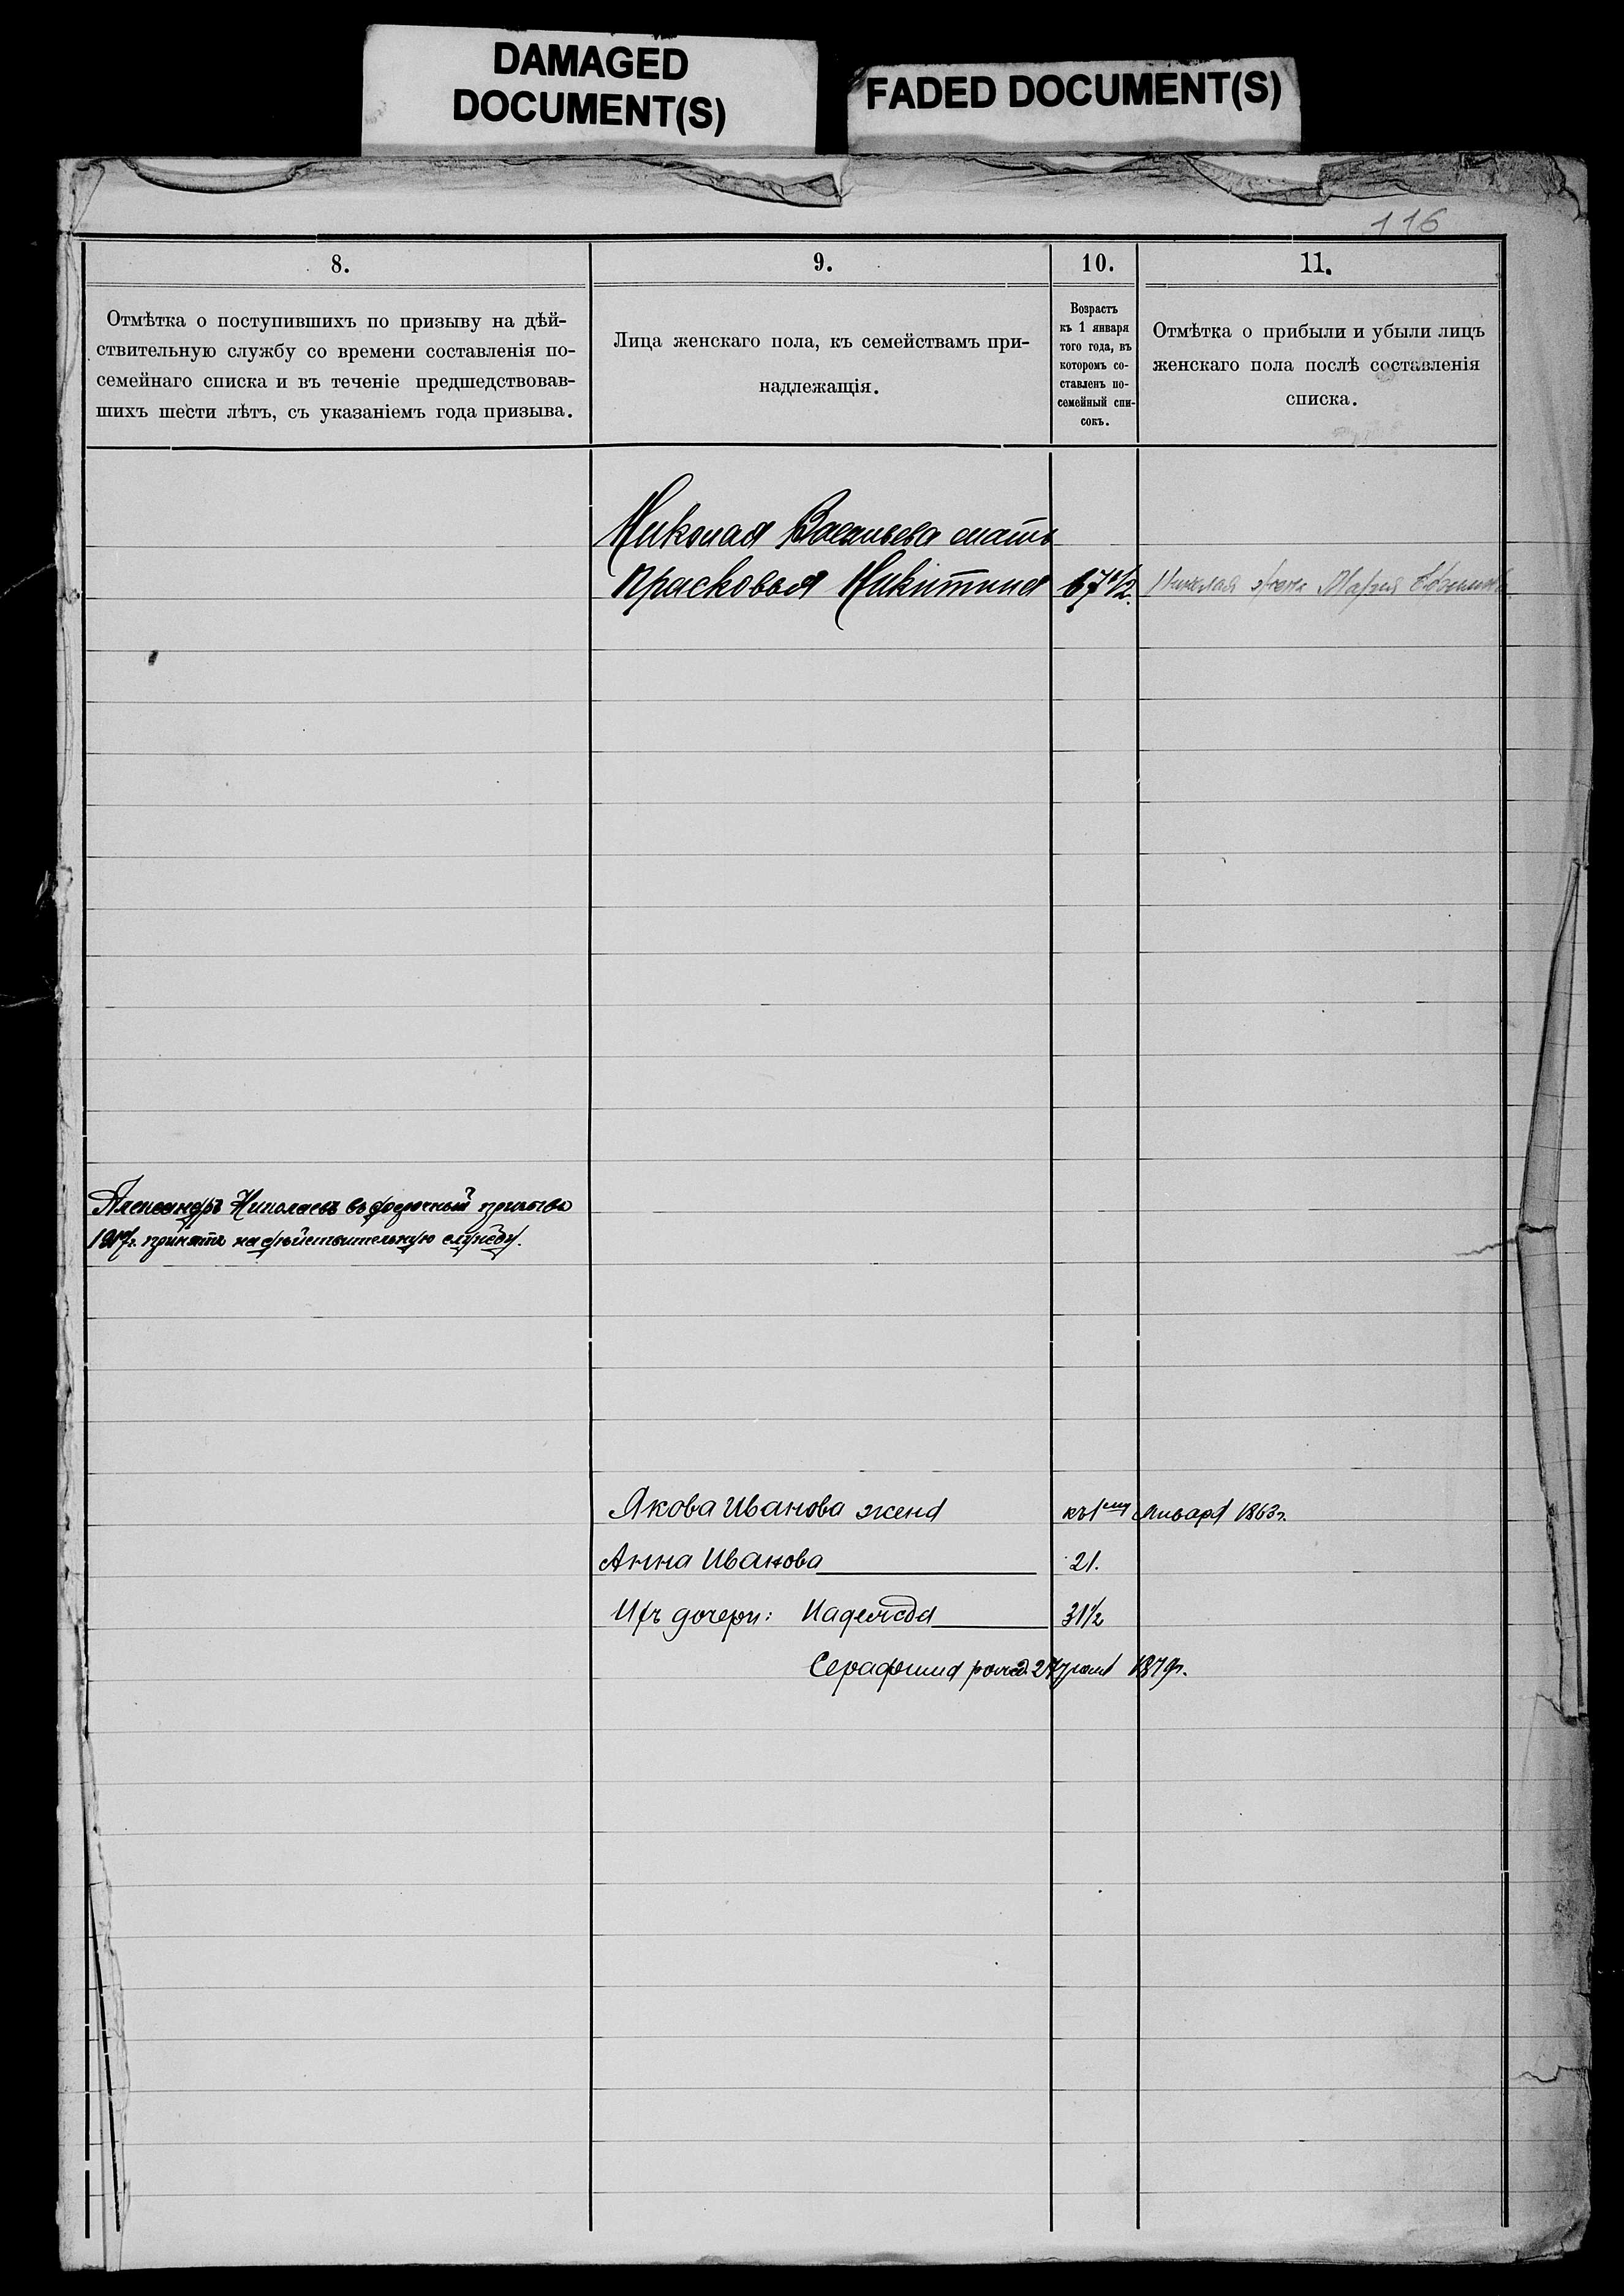 DAMAGED
DOCUMENT(S)
FADED DOCUMENT(S)
116
8.
Отмѣтка о поступившихъ по призыву на дѣй-
ствительную службу со времени составленія по-
семейнаго списка и въ теченіе предшедствовав-
шихъ шести лѣтъ, съ указаніемъ года призыва.
9.
Лица женскаго пола, къ семействамъ при-
надлежащія.
10.
Возрастъ
къ 1 января
того года, въ
которомъ со-
ставленъ по-
семейный спи-
сокъ.
11.
Отмѣтка о прибыли и убыли лицъ
женскаго пола послѣ составленія
списка.
Николая Васильева мать
Прасковья Никитина 67 1/2. Николая жена Мария
Александръ Николаевъ въ досрочный призывъ
1917г. принятъ на дѣйствительную службу.
Якова Иванова жена къ 1му Января 1863г.
Анна Иванова 21.
Ихъ дочери: Надежда 3 1/2
Серафима рожд. 27 1879г.